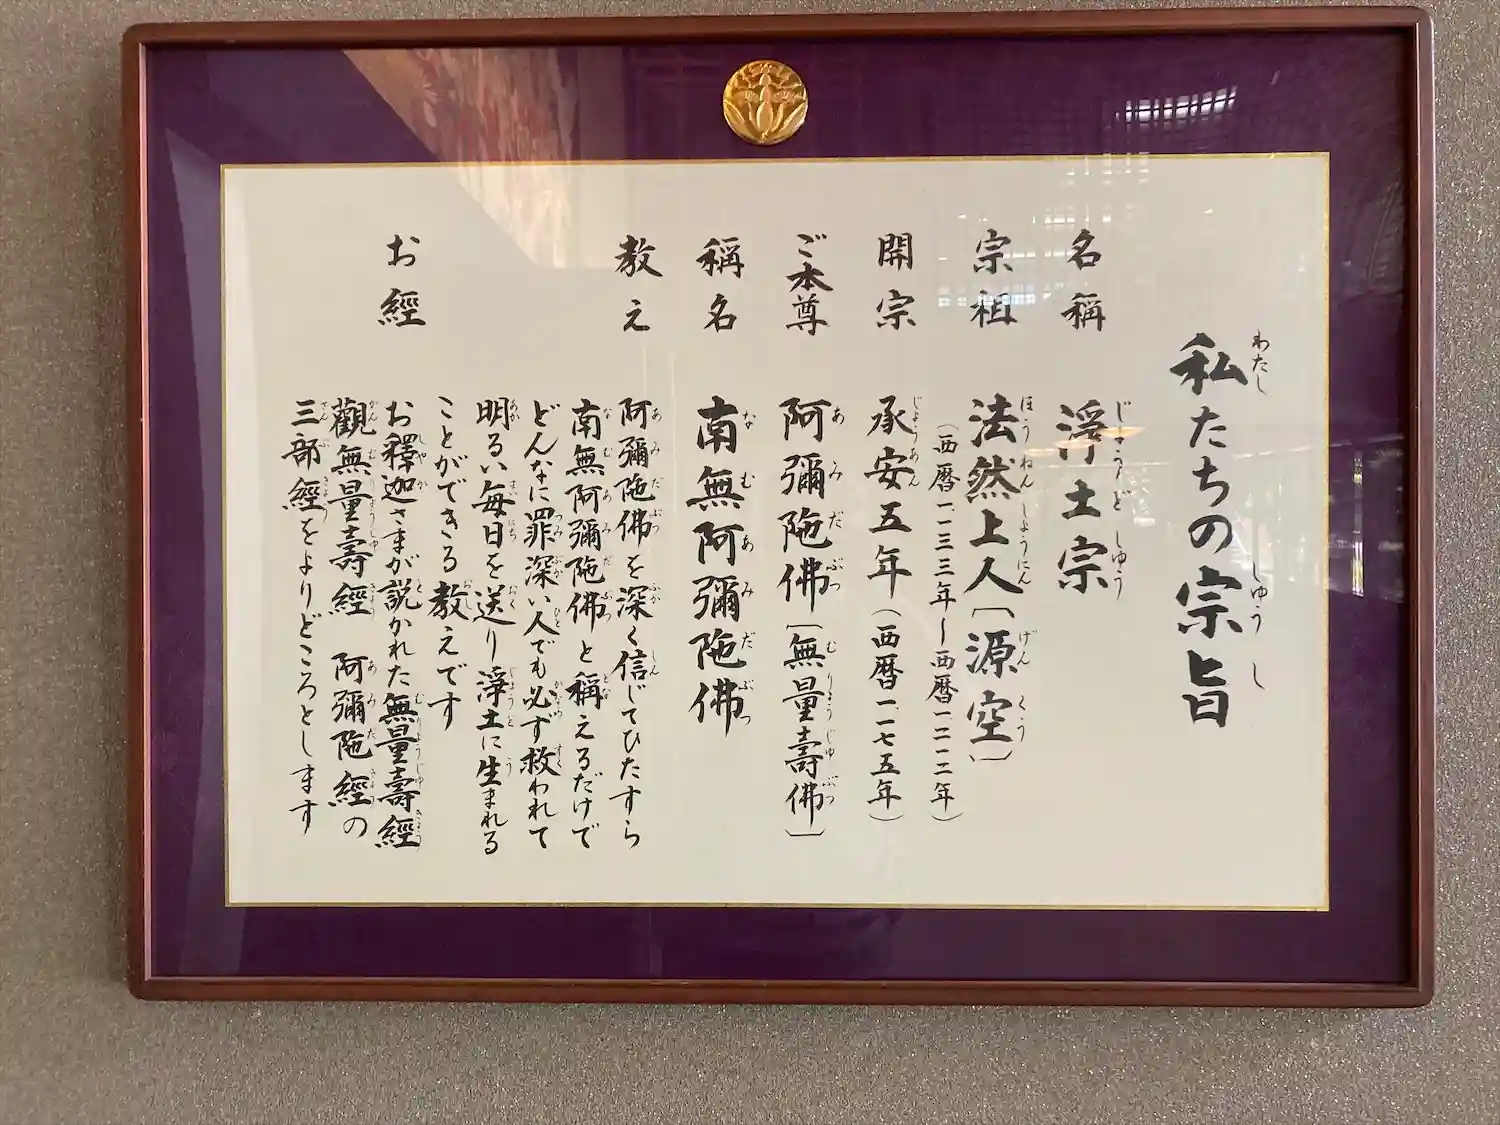 私たちの宗旨
名稱 浄土宗
宗祖 法然上人〔源空〕
（西暦一一三三年〜西暦一二一二年）
開宗 承安五年（西暦一一七五年）
ご本尊 阿彌陀佛〔無量壽佛〕
稱名 南無阿彌陀佛
教え 阿彌陀佛を深く信じてひたすら
南無阿彌陀佛と稱えるだけで
どんなに罪深い人でも必ず救われて
明るい毎日を送り淨土に生まれる
ことができる教えです
お經 お釋迦さまが説かれた無量壽經
觀無量壽經 阿彌陀經の
三部經をよりどころとします